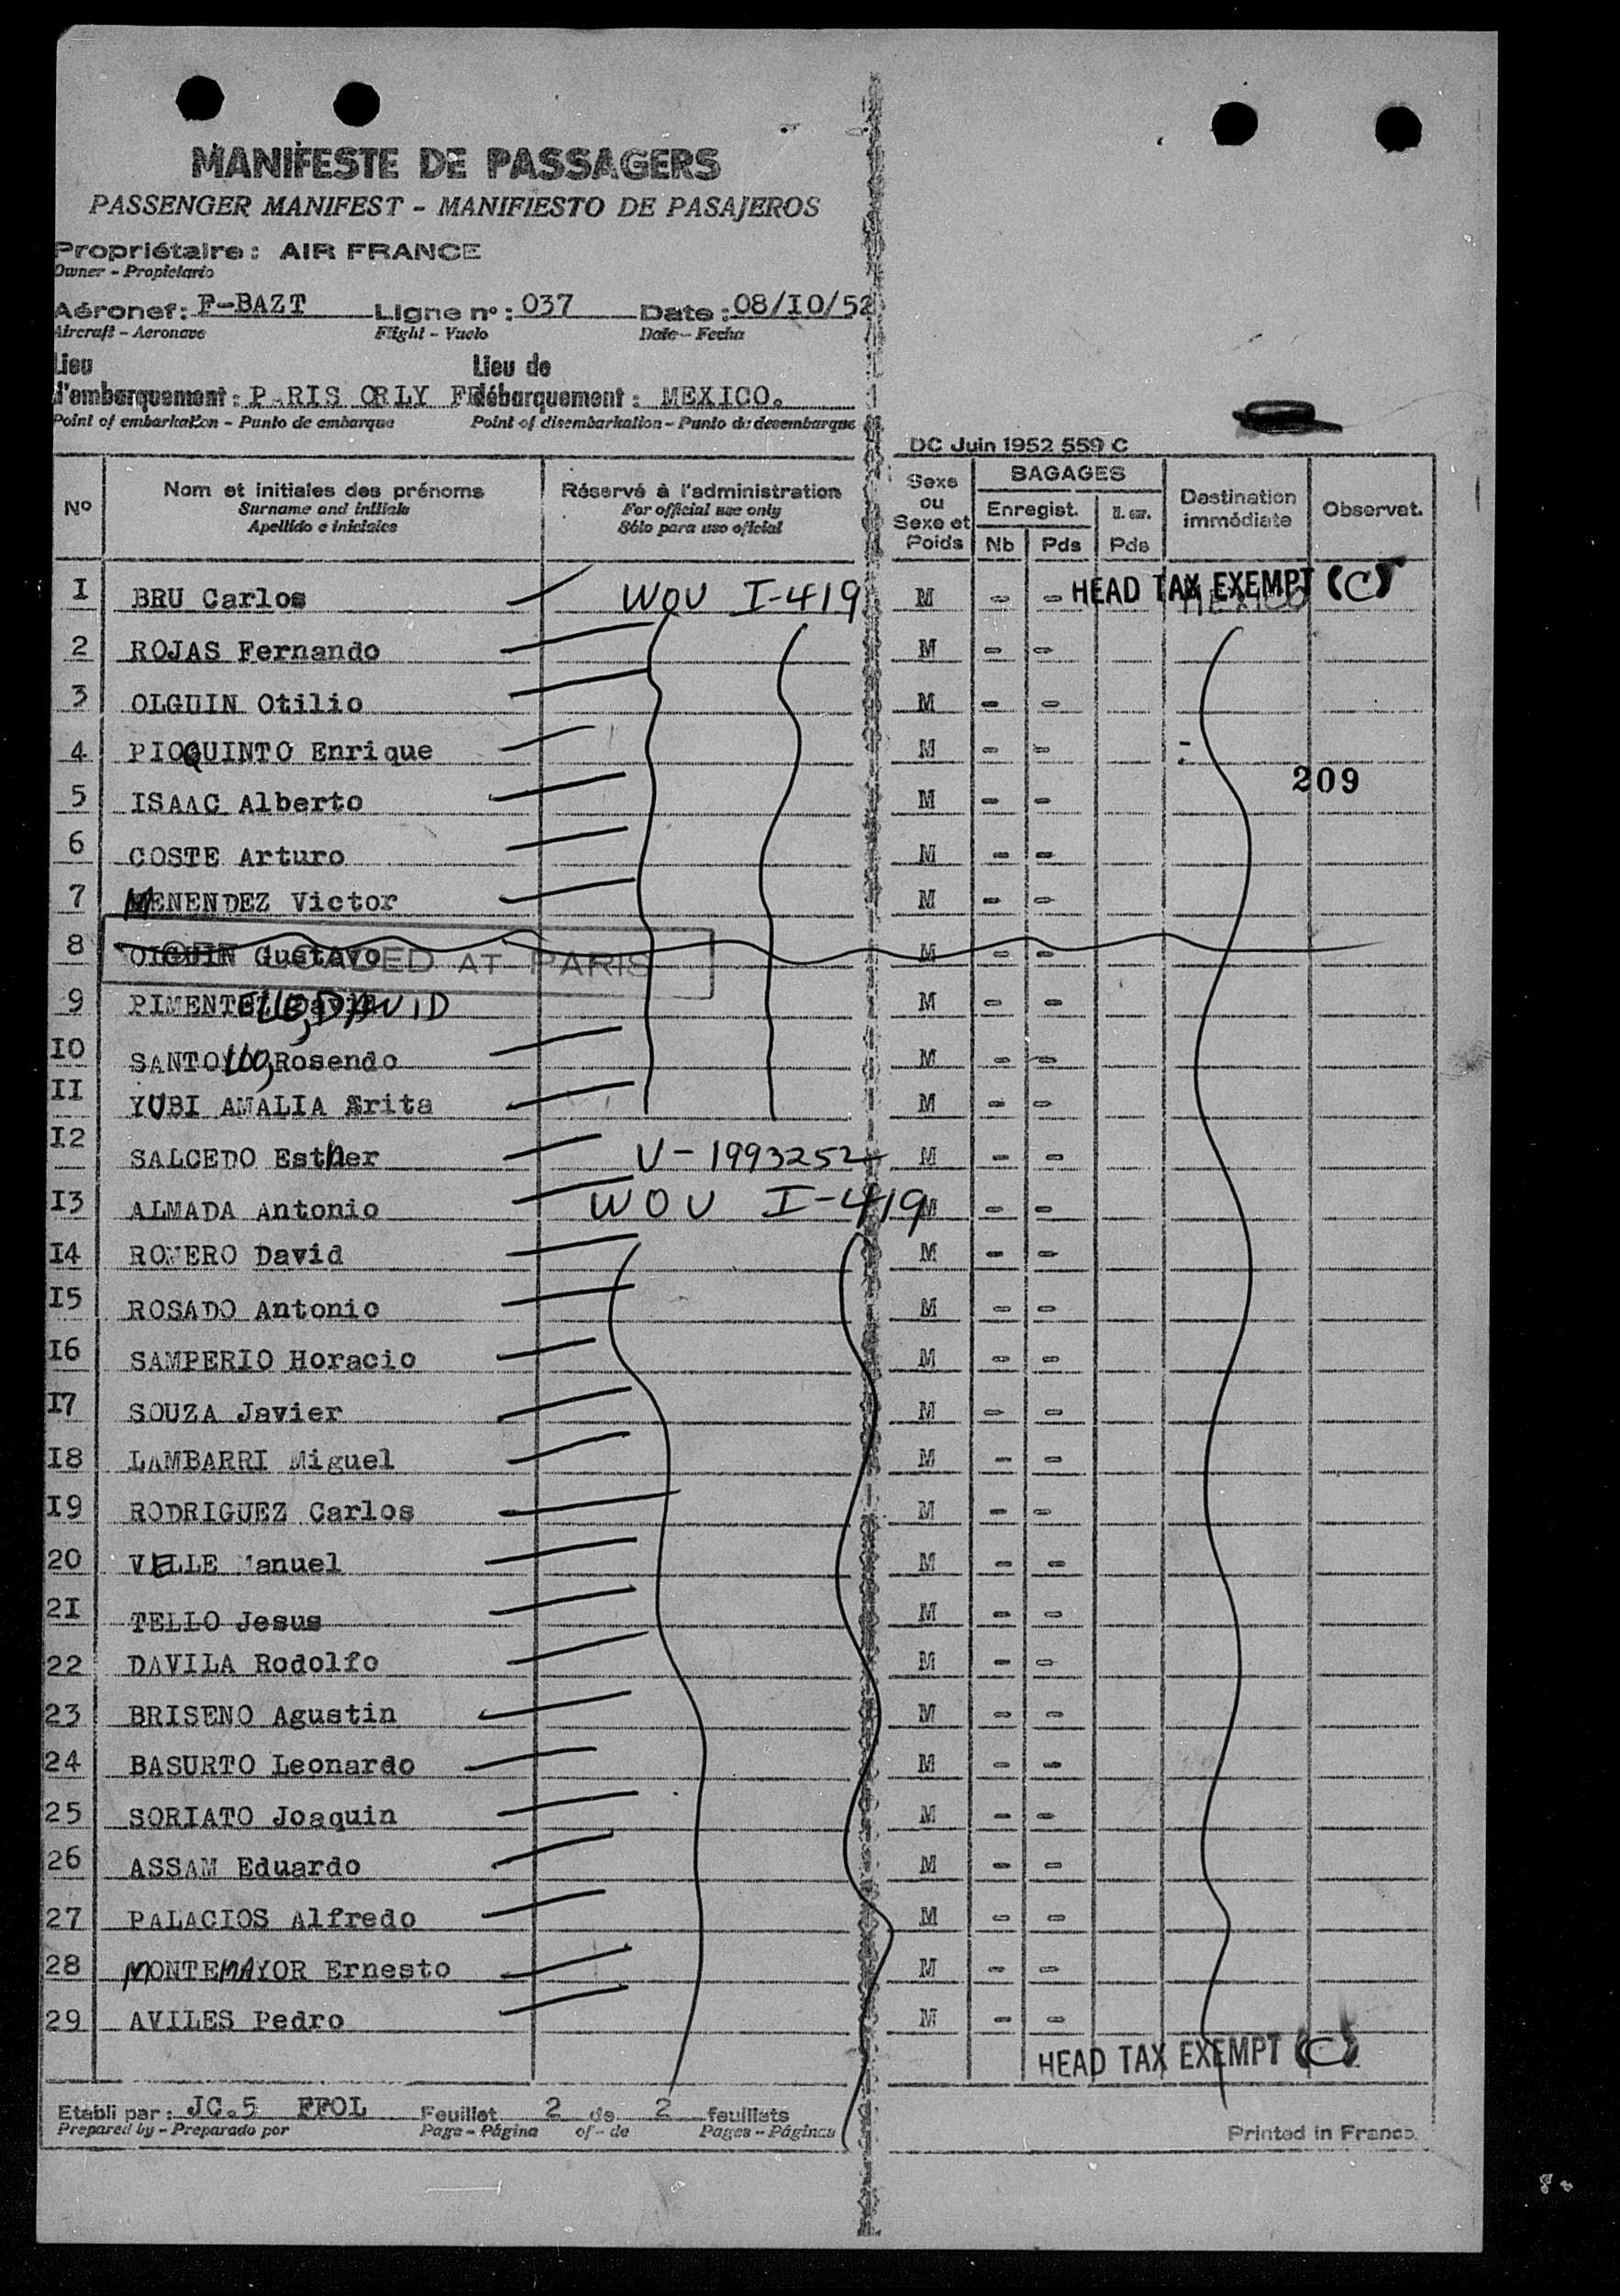 MANIFESTE DE PASSAGERS
PASSENGER MANIFEST - MANIFIESTO DE PASAJEROS
Propriétaire : AIR FRANCE
Owner - Propietario
Aéronef : F-BAZT Ligne n° : 037 Date : 08/I0/52
Aircraft - Aeronave Flight - Vuelo Date - Fecha
Lieu d'embarquement : PARIS ORLY FR Lieu de débarquement : MEXICO.
Point of embarkation - Punto de embarque Point of disembarkation - Punto de desembarque
DC Juin 1952 559 C
N° Nom et initiales des prénoms Réservé à l'administration Sexe ou Sexe et Poids BAGAGES Destination immédiate Observat.
Surname and initials For official use only Enregist.
Apellido e iniciales Sólo para uso oficial Nb Pds Pds
I BRU Carlos WOU I-419 M - - HEAD TAX EXEMPT (C) MEXICO
2 ROJAS Fernando M - -
3 OLGUIN Otilio M - -
4 PIOQUINTO Enrique M - -
5 ISAAC Alberto M - - 209
6 COSTE Arturo M - -
7 MENENDEZ Victor M - -
8 OLGUIN Gustavo LOADED AT PARIS M - -
9 PIMENTELLO, DAVID M - -
I0 SANTOLLO, Rosendo M - -
II YUBI AMALIA M - -
I2 SALCEDO Esther U-1993252 M - -
I3 ALMADA Antonio WOU I-419 M - -
I4 ROMERO David M - -
I5 ROSADO Antonio M - -
I6 SAMPERIO Horacio M - -
I7 SOUZA Javier M - -
I8 LAMBARRI Miguel M - -
I9 RODRIGUEZ Carlos M - -
20 VELLE Manuel M - -
2I TELLO Jesus M - -
22 DAVILA Rodolfo M - -
23 BRISENO Agustin M - -
24 BASURTO Leonardo M - -
25 SORIATO Joaquin M - -
26 ASSAM Eduardo M - -
27 PALACIOS Alfredo M - -
28 MONTEMAYOR Ernesto M - -
29 AVILES Pedro M - -
HEAD TAX EXEMPT (C)
Etabli par : JC.5 FFOL Feuillet 2 de 2 feuillets
Prepared by - Preparado por Page - Página of - de Pages - Páginas Printed in France.